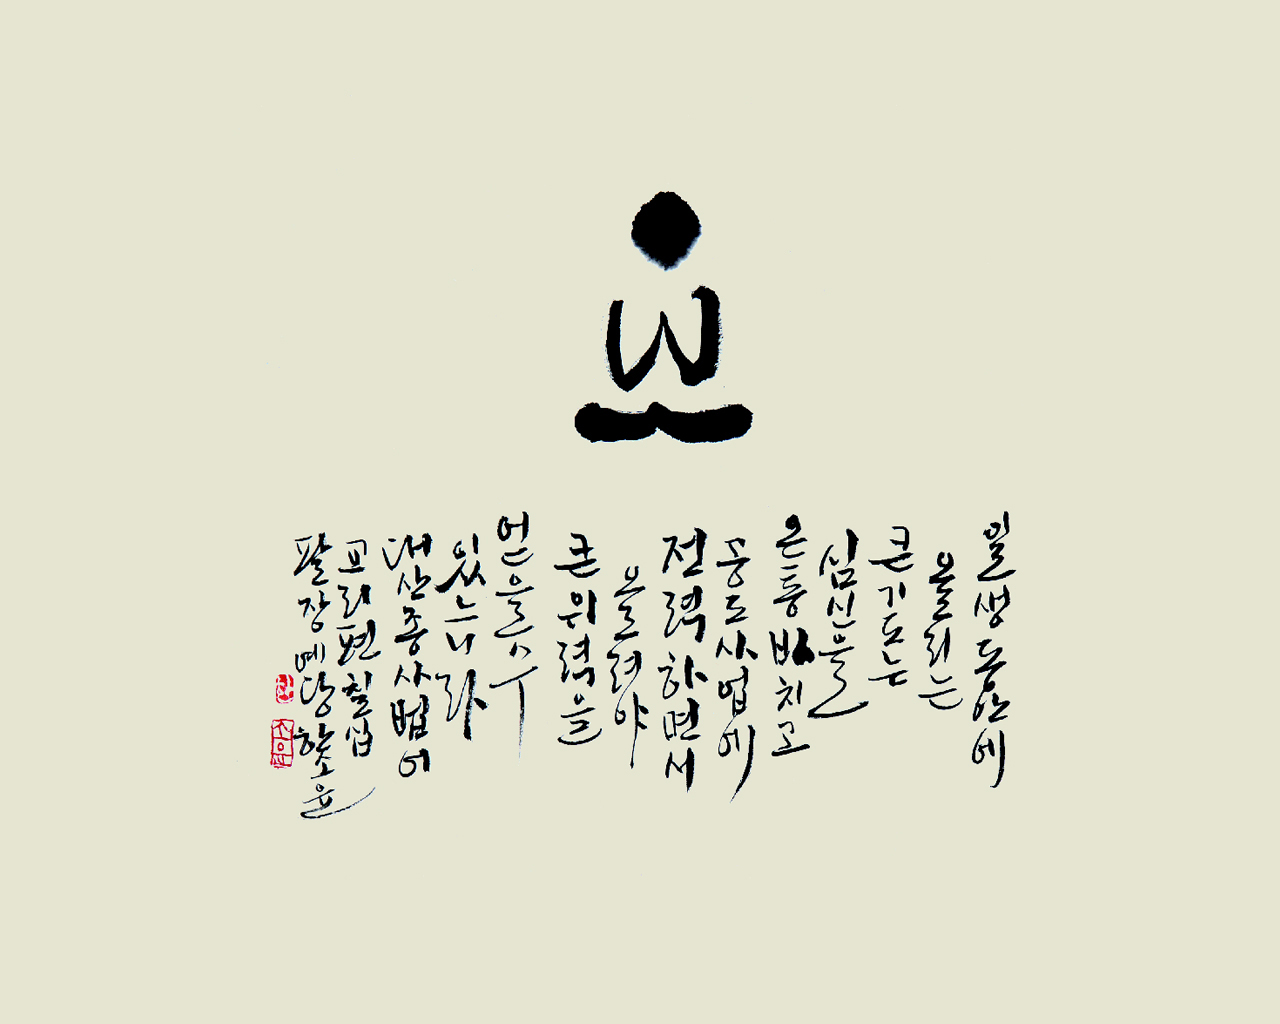 일생동안에
올리는
큰기도는
심신을
온통바치고
공도사업에
전력하면서
올려야
큰위력을
얻을수
있느니라
대산종사법어
교리편칠십
팔장